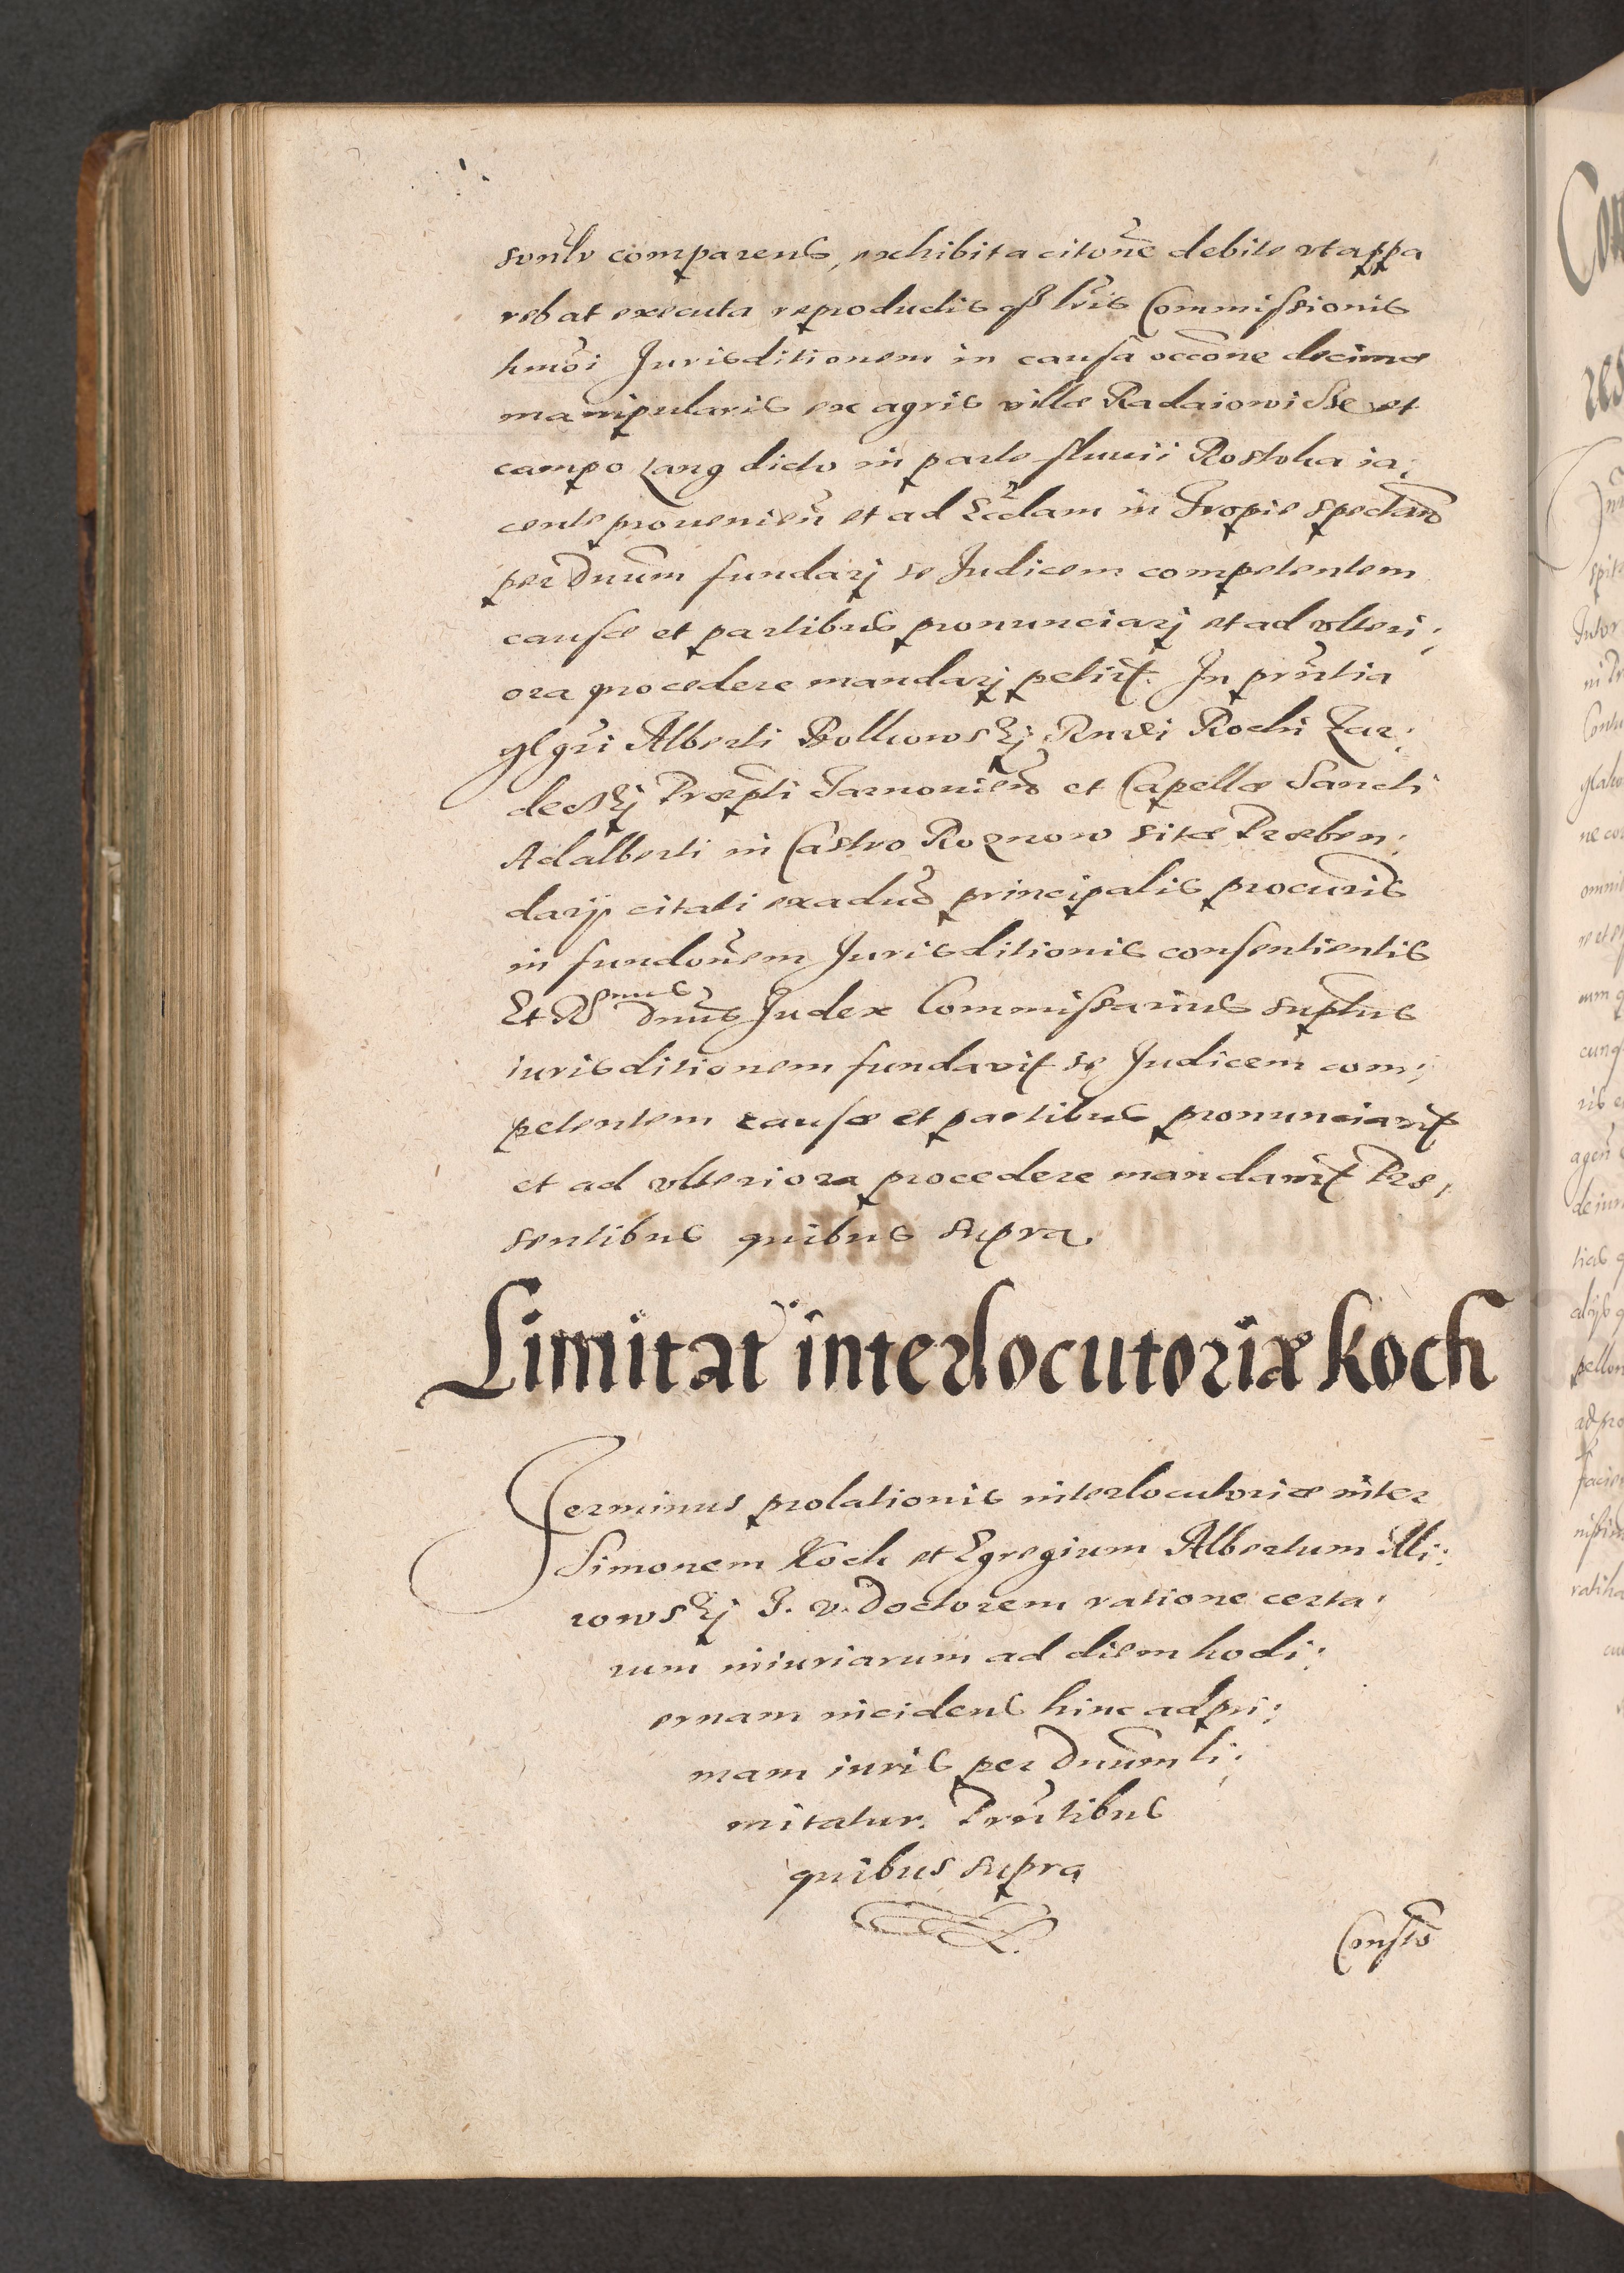 sonlr comparens, exhibita citone debite vt appa
rebat executa reproductis qz lris Commissionis
hmoi Jurisditionem in causa occone decimæ
manipularis ex agris villæ Radaiowicze et
campo Lang dicto in parte fluuii Rostoka ia:
cente prouenien et ad Eccliam in Tropie spectan
per Dnum fundarj se Judicem competentem
causæ et partibus pronunciarj et ad vlteri:
ora procedere mandarj petiit. In prntia
glgri Alberti Rndi Rochi Zar:
deczkj Præpti Tarnouien et Capellæ Sancti
Adalberti in Castro Roznow sitæ Præben:
darij citati ex aduo principalis procuris
in fundonem Jurisditionis consentientis
Et Rssmus Dnus Judex Commissarius suptus
iurisditionem fundauit se Judicem com:
petentem causæ et partibus pronunciauit
et ad vlteriora procedere mandauit Præ,
sentibus quibus supra.
Limitat interlocutoriæ Koch
Terminus prolationis interlocutoriæ inter
Simonem Koch et Egregium Albertum Mi:
rowskj J. v. Doctorem ratione certa:
rum iniuriarum ad diem hodi:
ernam incidens hinc ad pri:
mam iuris per Dnum li:
mitatur. Prntibus
quibus supra